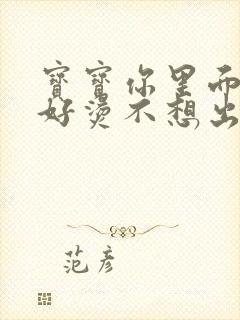 寶寶你里而
好燙不想出
范彥